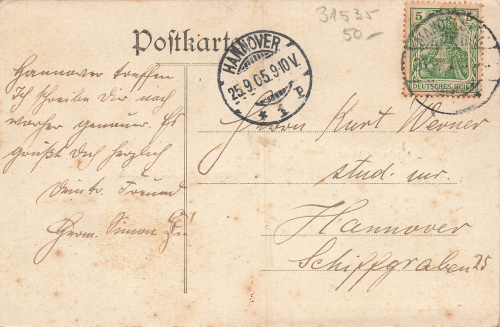 31535
50.-
5
DEUTSCHES REICH
Postkarte
HANNOVER
25.9.05.9-10V.
* 1 P
Hannover treffen
Ich schreibe Dir noch
vorher genauer. Es
grüßt Dich herzlich
Dein tr. Freund
Herm. Simon
Herrn Kurt Werner
stud. iur.
Hannover
Schiffgraben 25